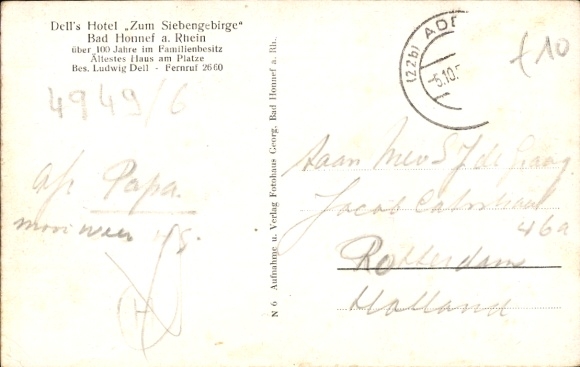 Dell's Hotel „Zum Siebengebirge“
Bad Honnef a. Rhein
über 100 Jahre im Familienbesitz
Ältestes Haus am Platze
Bes. Ludwig Dell - Fernruf 2660
4949/6
Papa.
N 6 Aufnahme u. Verlag Fotohaus Georg, Bad Honnef a. Rh.
(22b) ADE
-5.10.
f 10
Aan Mev S J de
Jacob
46a
Rotterdam
Holland